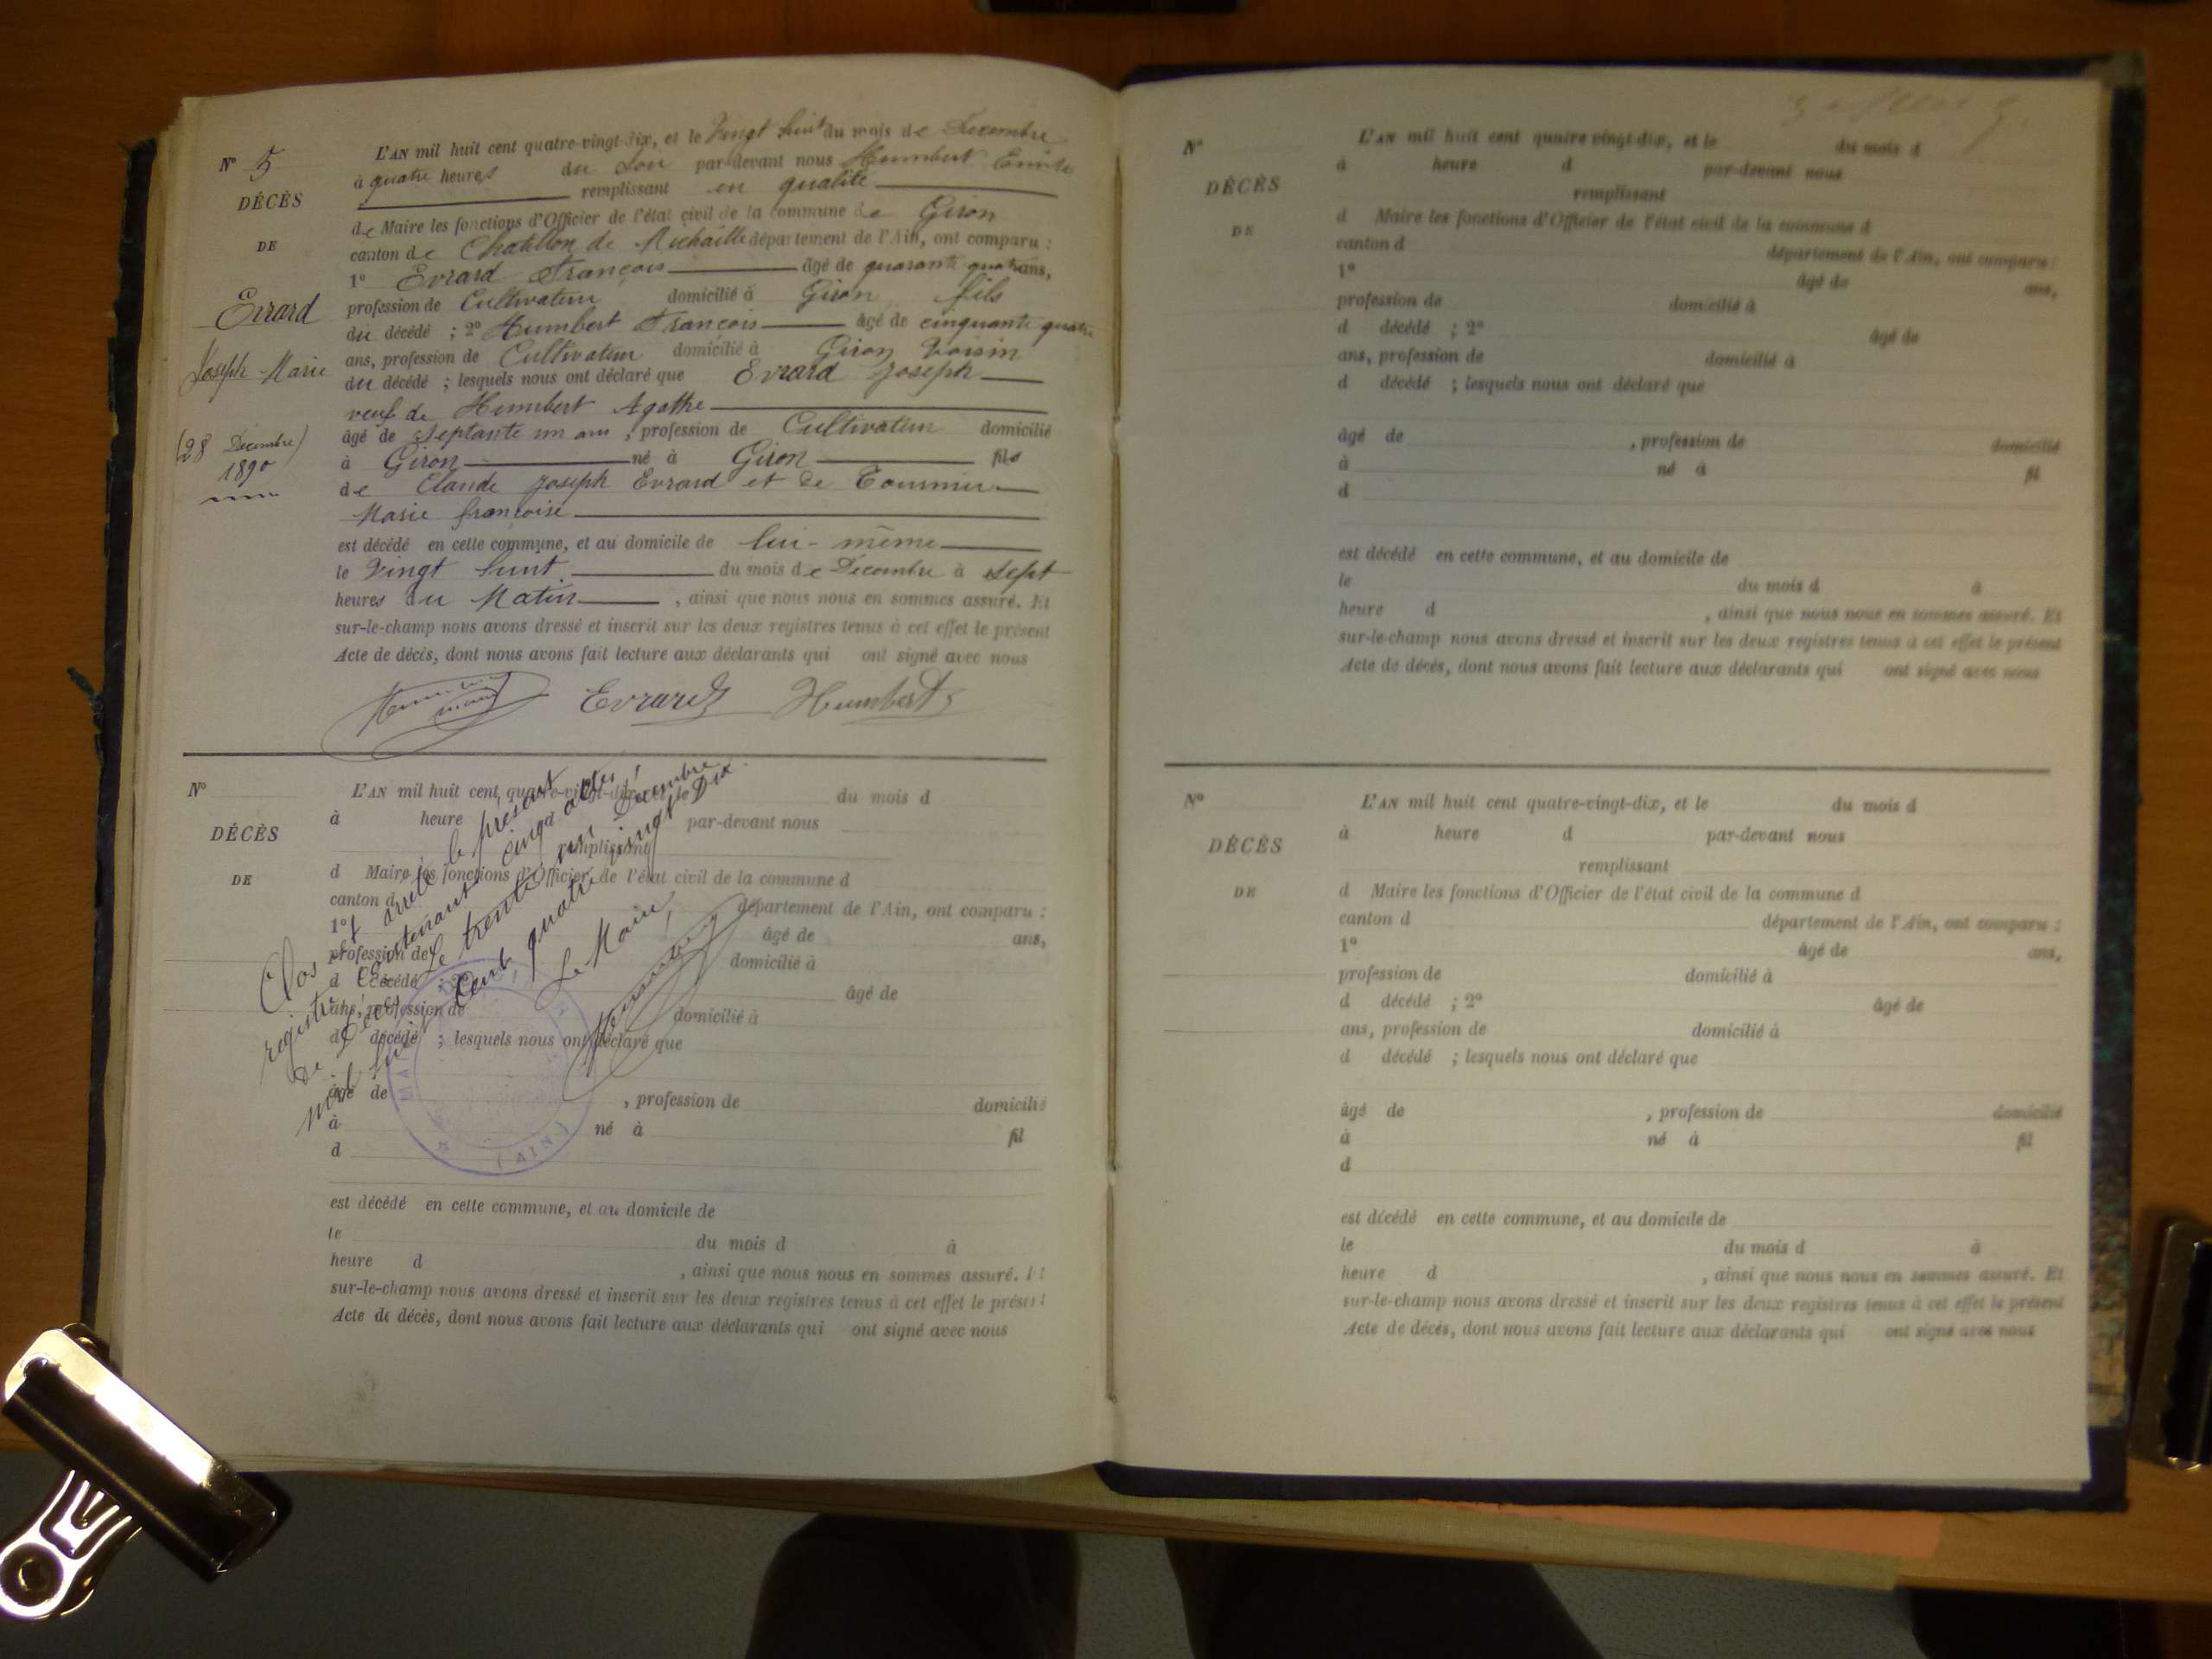 N° 5
DÉCÈS
DE
Evrard
Joseph-Marie
(28 Décembre)
1890
L'AN mil huit cent quatre-vingt-dix, et le Vingt huit du mois de Decembre
à quatre heures du Soir par-devant nous Humbert Emile
remplissant en qualité
de Maire les fonctions d'Officier de l'état civil de la commune de Giron
canton de Chatillon de Michaille département de l'Ain, ont comparu :
1° Evrard François âgé de quarante quatre ans,
profession de Cultivateur domicilié à Giron fils
du décédé ; 2° Humbert François âgé de cinquante quatre
ans, profession de Cultivateur domicilié à Giron Voisin
du décédé ; lesquels nous ont déclaré que Evrard Joseph
veuf de Humbert Agathe
âgé de Septante un ans , profession de Cultivateur domicilié
à Giron né à Giron fils
de Claude Joseph Evrard et de
Marie françoise
est décédé en cette commune, et au domicile de lui-même
le Vingt huit du mois de Décembre à sept
heures du Matin , ainsi que nous nous en sommes assuré. Et
sur-le-champ nous avons dressé et inscrit sur les deux registres tenus à cet effet le présent
Acte de décès, dont nous avons fait lecture aux déclarants qui ont signé avec nous
Evrard Humbert
N°
DÉCÈS
DE
L'AN mil huit cent quatre-vingt-dix, et le du mois d
à heure d par-devant nous
remplissant
d Maire les fonctions d'Officier de l'état civil de la commune d
canton d département de l'Ain, ont comparu :
1° âgé de ans,
profession de domicilié à
d décédé ; 2° âgé de
ans, profession de domicilié à
d décédé ; lesquels nous ont déclaré que
âgé de , profession de domicilié
à né à fil
d
est décédé en cette commune, et au domicile de
le du mois d à
heure d , ainsi que nous nous en sommes assuré. Et
sur-le-champ nous avons dressé et inscrit sur les deux registres tenus à cet effet le présent
Acte de décès, dont nous avons fait lecture aux déclarants qui ont signé avec nous
Clos et arrêté le présent
registre contenant cinq actes
de Décès, le trente un Décembre
mil huit cent quatre vingt Dix.
Le Maire,
MAIRIE
(AIN)
N°
DÉCÈS
DE
L'AN mil huit cent quatre-vingt-dix, et le du mois d
à heure d par-devant nous
remplissant
d Maire les fonctions d'Officier de l'état civil de la commune d
canton d département de l'Ain, ont comparu :
1° âgé de ans,
profession de domicilié à
d décédé ; 2° âgé de
ans, profession de domicilié à
d décédé ; lesquels nous ont déclaré que
âgé de , profession de domicilié
à né à fil
d
est décédé en cette commune, et au domicile de
le du mois d à
heure d , ainsi que nous nous en sommes assuré. Et
sur-le-champ nous avons dressé et inscrit sur les deux registres tenus à cet effet le présent
Acte de décès, dont nous avons fait lecture aux déclarants qui ont signé avec nous
N°
DÉCÈS
DE
L'AN mil huit cent quatre-vingt-dix, et le du mois d
à heure d par-devant nous
remplissant
d Maire les fonctions d'Officier de l'état civil de la commune d
canton d département de l'Ain, ont comparu :
1° âgé de ans,
profession de domicilié à
d décédé ; 2° âgé de
ans, profession de domicilié à
d décédé ; lesquels nous ont déclaré que
âgé de , profession de domicilié
à né à fil
d
est décédé en cette commune, et au domicile de
le du mois d à
heure d , ainsi que nous nous en sommes assuré. Et
sur-le-champ nous avons dressé et inscrit sur les deux registres tenus à cet effet le présent
Acte de décès, dont nous avons fait lecture aux déclarants qui ont signé avec nous